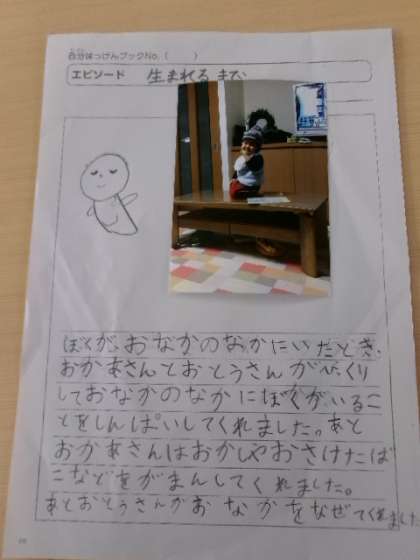 自分はっけんブックNo.（　　）
エピソード 生まれる まで
ぼくが、おなかのなかにいたとき、
おかあさんとおとうさんがびっくり
しておなかのなかにぼくがいるこ
とをしんぱいしてくれました。あと
おかあさんはおかしやおさけたば
こなどをがまんしてくれました。
あとおとうさんがおなかをなぜてくれました